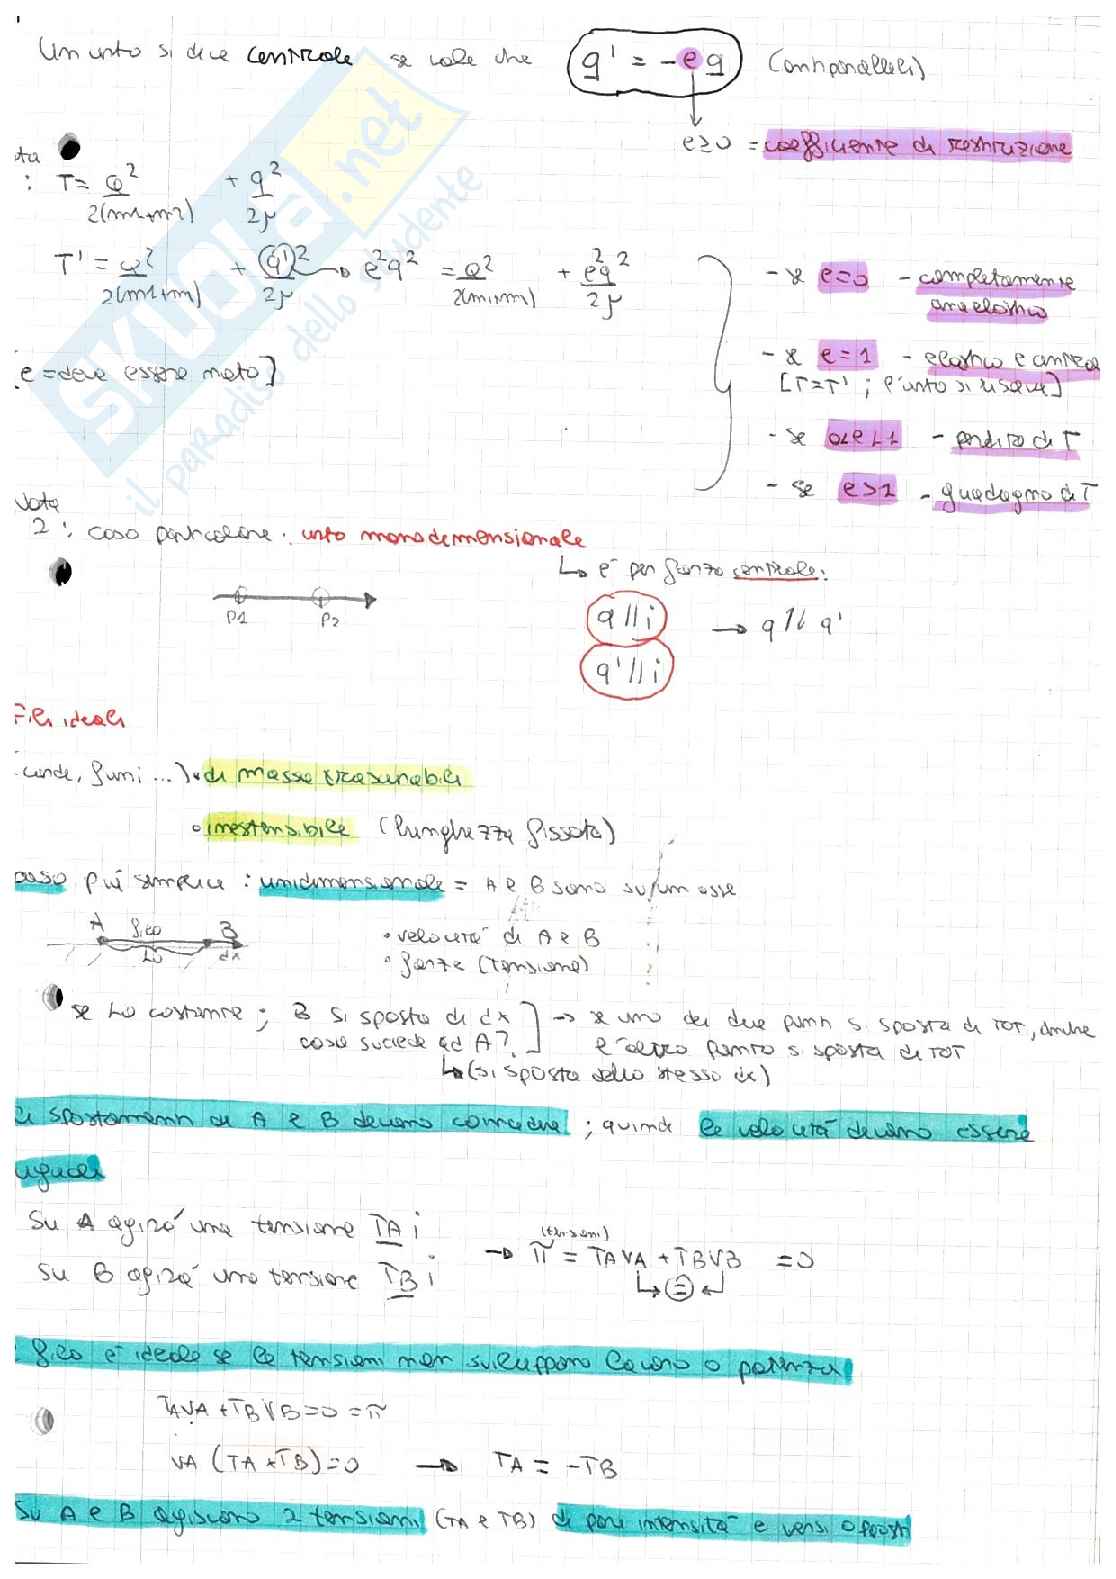 Un urto si dice centrale se vale che q' = -e q (antiparalleli)
e≥0 = coefficiente di restituzione
ota
: T = Q² / 2(m1+m2) + q² / 2μ
T' = Q² / 2(m1+m2) + (q')² / 2μ → e²q² = Q² / 2(m1+m2) + e²q² / 2μ
[e = deve essere noto]
- se e=0 - completamente
anelastico
- se e=1 - elastico e centrale
[T=T' ; l'urto si risolve]
- se 0<e<1 - perdita di T
- se e>1 - guadagno di T
Nota
2 : caso particolare : urto monodimensionale
↳ è per forza centrale:
P1 P2
q // i → q // q'
q' // i
Fili ideali
corde, funi ...) • di massa trascurabile
• inestensibile (lunghezza fissata)
caso più semplice : unidimensionale = A e B sono su un asse
A filo B
L0 dx
• velocità di A e B
• forze (tensione)
se L0 costante ; B si sposta di dx
cosa succede ad A?
→ se uno dei due punti si sposta di TOT, anche
l'altro punto si sposta di TOT
↳ (si sposta dello stesso dx)
gli spostamenti di A e B devono coincidere ; quindi le velocità devono essere
uguali
Su A agirà una tensione TA i
Su B agirà una tensione TB i
→ π (tensioni) = TAVA + TBVB = 0
↳ (=) ↲
filo è ideale se le tensioni non sviluppano lavoro o potenza
TAVA + TBVB = 0 = π
VA (TA + TB) = 0 → TA = -TB
Su A e B agiscono 2 tensioni (TA e TB) di pari intensità e versi opposti
SKUOLA.net
il paradiso dello studente